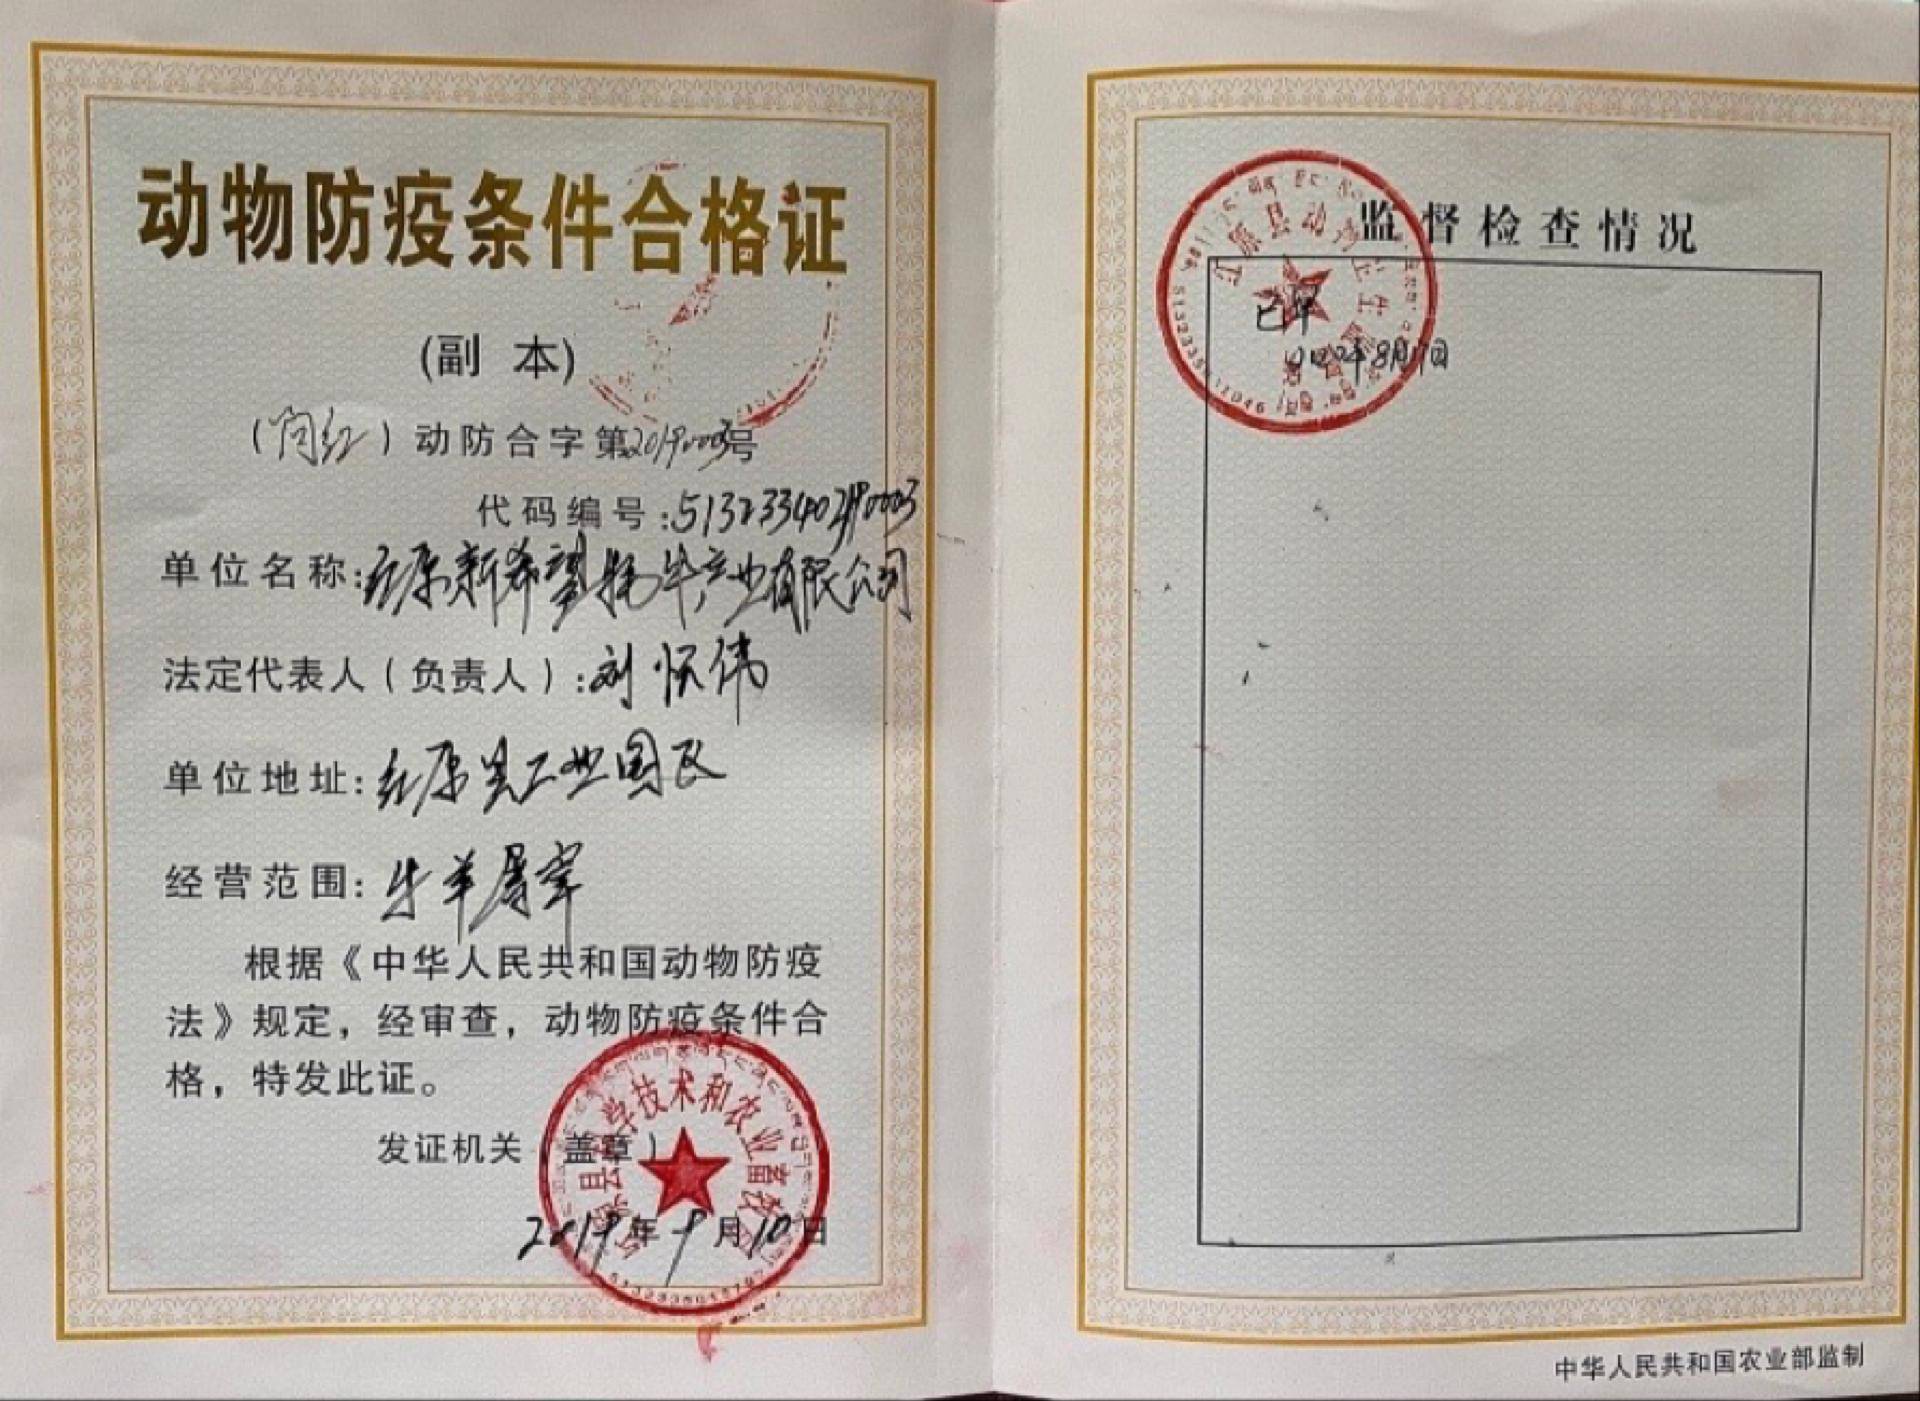 动物防疫条件合格证
(副 本)
(阿红)动防合字第20190003号
代码编号:513233402190003
单位名称:红原新希望牦牛产业有限公司
法定代表人(负责人):刘怀伟
单位地址:红原县工业园区
经营范围:牛羊屠宰
根据《中华人民共和国动物防疫
法》规定,经审查,动物防疫条件合
格,特发此证。
发证机关(盖章)
2019年9月10日
学技术和农业畜牧
监督检查情况
原县动物卫生监督
8月17日
中华人民共和国农业部监制